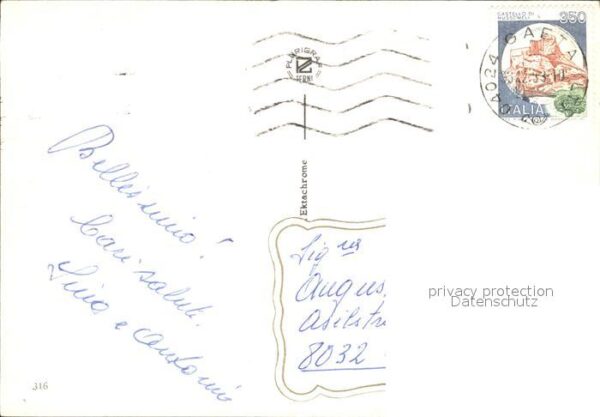 CASTELLO DI
350
GAETA
04024
ITALIA
PLURIGRAF
TERNI
Ektachrome
Bellissimo!
Cari saluti.
e Antonio
Sig.
Augus
8032
privacy protection
Datenschutz
316